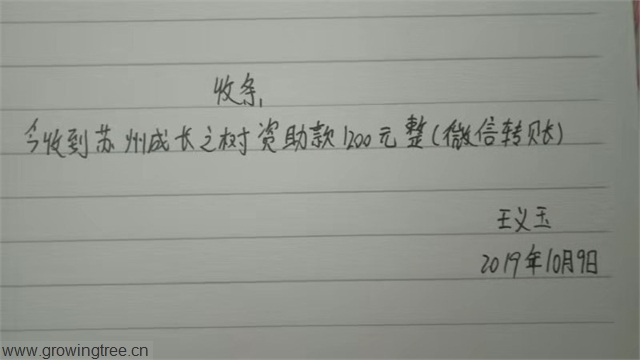 收条
今收到苏州成长之树资助款1200元整(微信转账)
王义玉
2019年10月9日
www.growingtree.cn